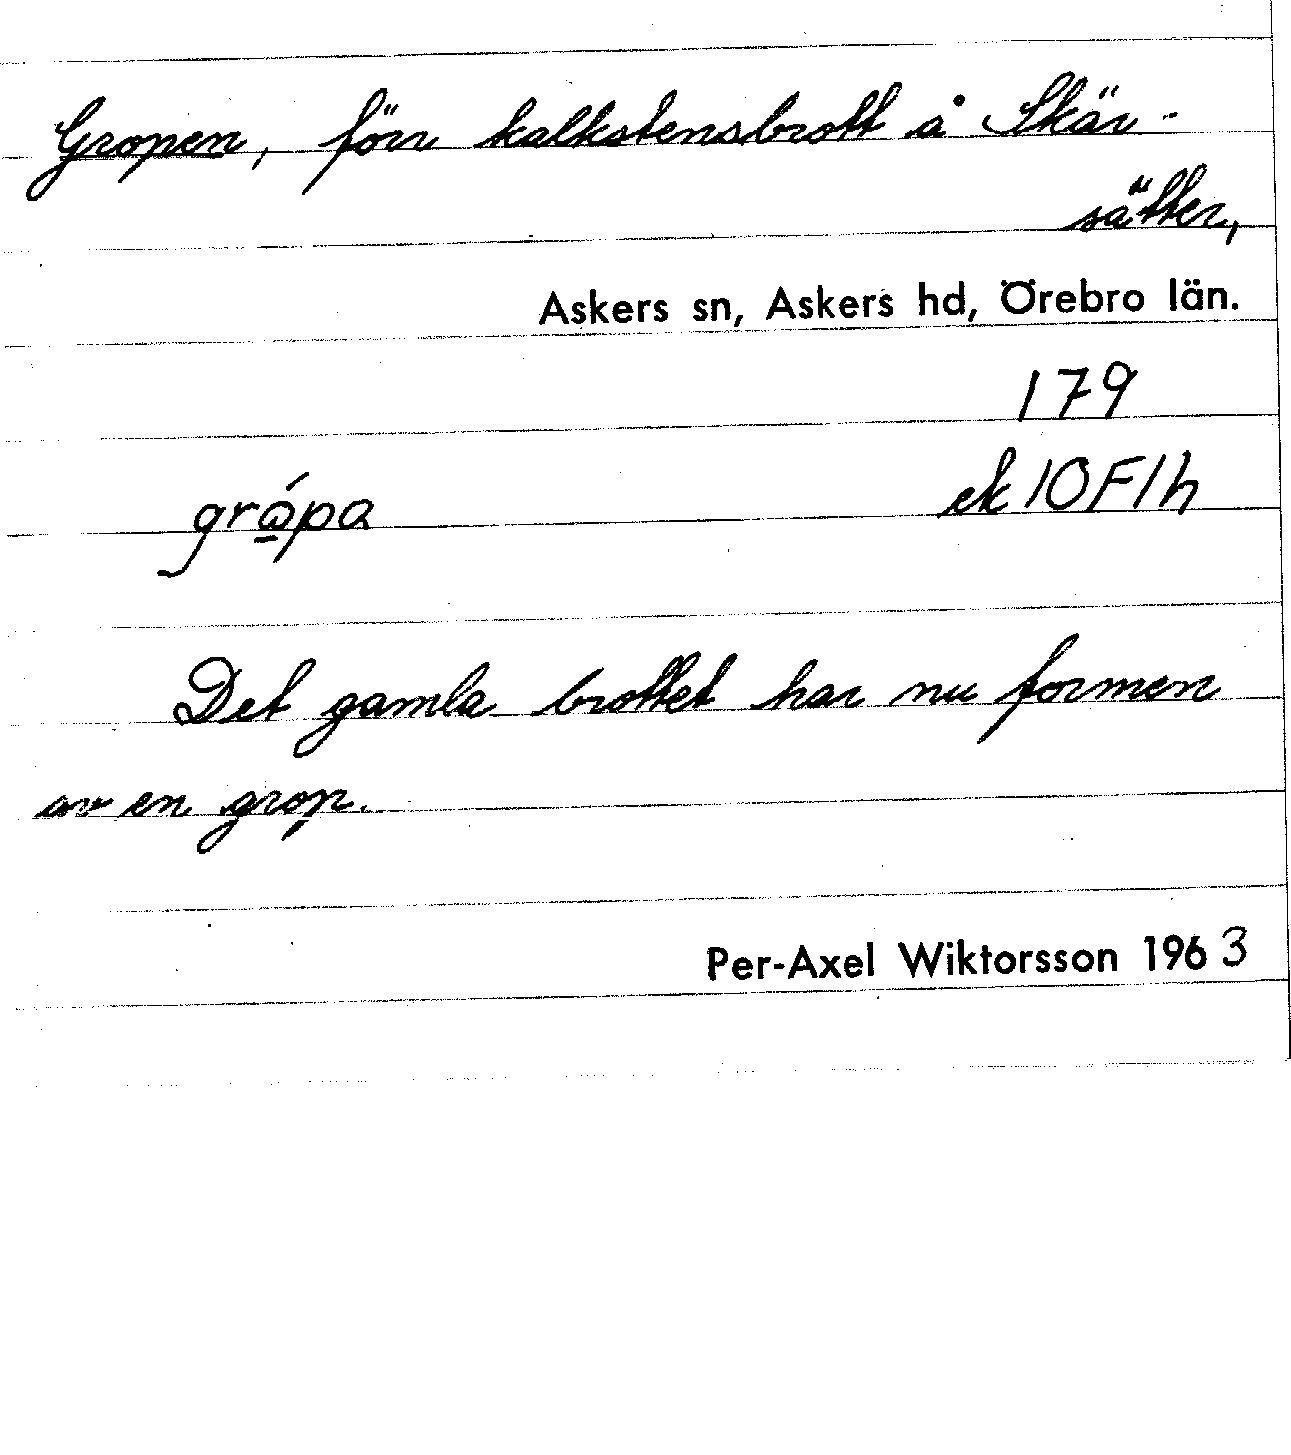 Gropen, förr kalkstensbrott å Skär-
sätter,
Askers sn, Askers hd, Örebro län.
179
ek 10F1h
Det gamla brottet har nu formen
av en grop.
Per-Axel Wiktorsson 1963